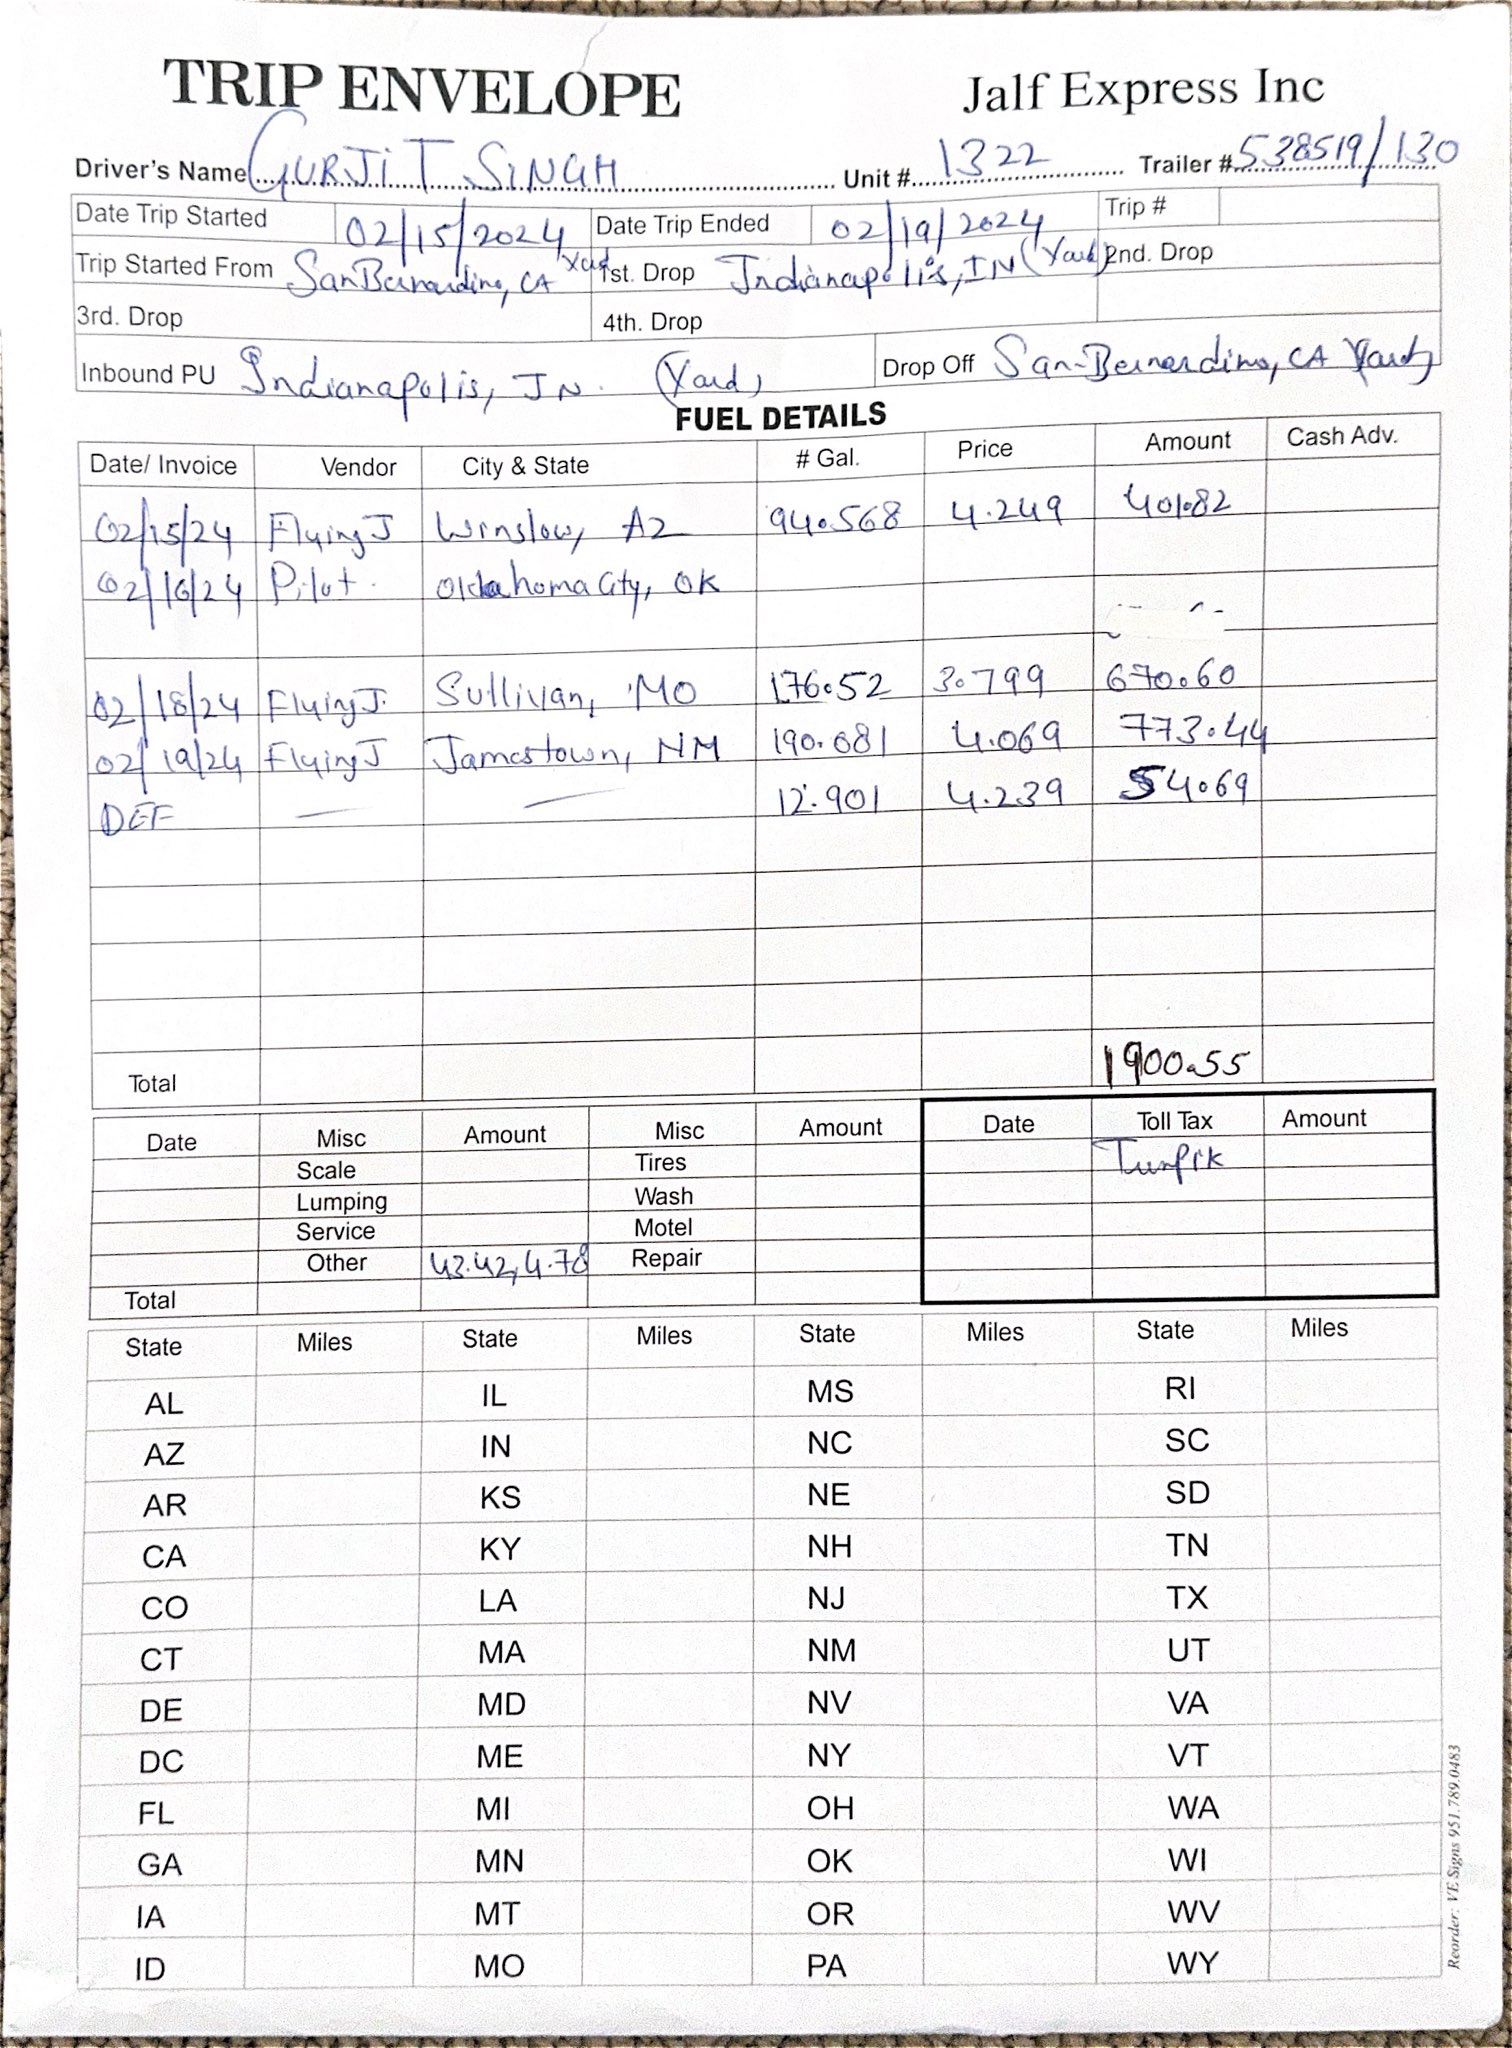 TRIP ENVELOPE Jalf Express Inc
Driver's Name GURJIT SINGH Unit # 1322 Trailer # 538519/130
Date Trip Started 02/15/2024 Date Trip Ended 02/19/2024 Trip #
Trip Started From San Bernardino, CA Yard 1st. Drop Indianapolis, IN (Yard) 2nd. Drop
3rd. Drop 4th. Drop
Inbound PU Indianapolis, IN. (Yard) Drop Off San-Bernardino, CA Yard
FUEL DETAILS
Date/ Invoice Vendor City & State # Gal. Price Amount Cash Adv.
02/15/24 Flying J Winslow, AZ 94.568 4.249 401.82
02/16/24 Pilot. Oklahoma City, OK
02/18/24 Flying J. Sullivan, MO 176.52 3.799 670.60
02/19/24 Flying J Jamestown, NM 190.081 4.069 773.44
DEF — — 12.901 4.239 54.69
Total 1900.55
Date Misc Amount Misc Amount Date Toll Tax Amount
Scale Tires Turnpik
Lumping Wash
Service Motel
Other 43.42, 4.78 Repair
Total
State Miles State Miles State Miles State Miles
AL IL MS RI
AZ IN NC SC
AR KS NE SD
CA KY NH TN
CO LA NJ TX
CT MA NM UT
DE MD NV VA
DC ME NY VT
FL MI OH WA
GA MN OK WI
IA MT OR WV
ID MO PA WY
Reorder: VE Signs 951.789.0483